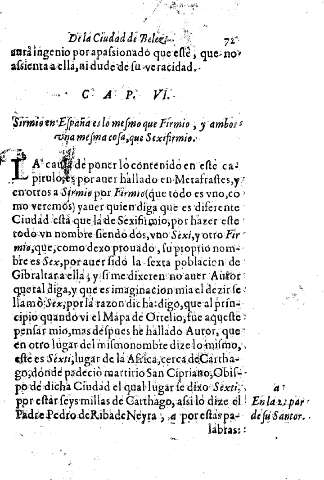 De la Ciudad de Belez. 72
aurà ingenio por apassionado que estè, que no
assienta a ella, ni dude de su veracidad.
C A P. VI.
Sirmio en España es lo mesmo que Firmio, y ambos
vna mesma cosa, que Sexifirmio.
LA causa de poner lo contenido en este ca-
pitulo, es por auer hallado en Metafrastes, y
en otros a Sirmio por Firmio (que todo es vno, co
mo veremos) y auer quien diga que es diferente
Ciudad està que la de Sexifirmio, por hazer este
todo vn nombre siendo dos, vno Sexi, y otro Fir
mio, que, como dexo prouado, su proprio nom-
bre es Sex, por auer sido la sexta poblacion de
Gibraltar a ella; y si me dixeren no auer Autor
que tal diga, y que es imaginacion mia el dezir se
llamò Sex, por la razon dicha: digo, que al prin-
cipio quando vi el Mapa de Ortelio, fue aqueste
pensar mio, mas despues he hallado Autor, que
en otro lugar del mismo nombre dize lo mismo,
este es Sexti, lugar de la Africa, cerca de Cartha-
go, donde padeciò martirio San Cipriano, Obis-
po de dicha Ciudad el qual lugar se dixo Sexti,
por estàr seys millas de Carthago, assi lo dize el
Padre Pedro de Riba de Neyra, a por estàs pa-
labras:
a
En la 2. par
de su Santor.